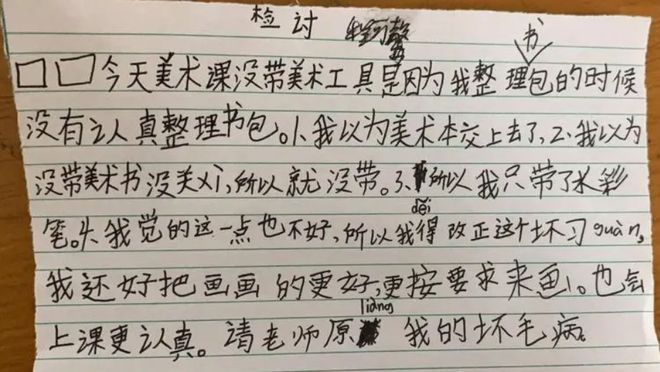 检讨
书
□□今天美术课没带美术工具是因为我整理包的时候
没有认真整理书包。1、我以为美术本交上去了,2、我以为
没带美术书没关xi,所以就没带。3、所以我只带了水彩
笔。4、我觉的这一点也不好,所以我得(děi)改正这个坏习guàn,
我还好把画画的更好,更按要求来画。也会
上课更认真。请老师原liàng我的坏毛病。